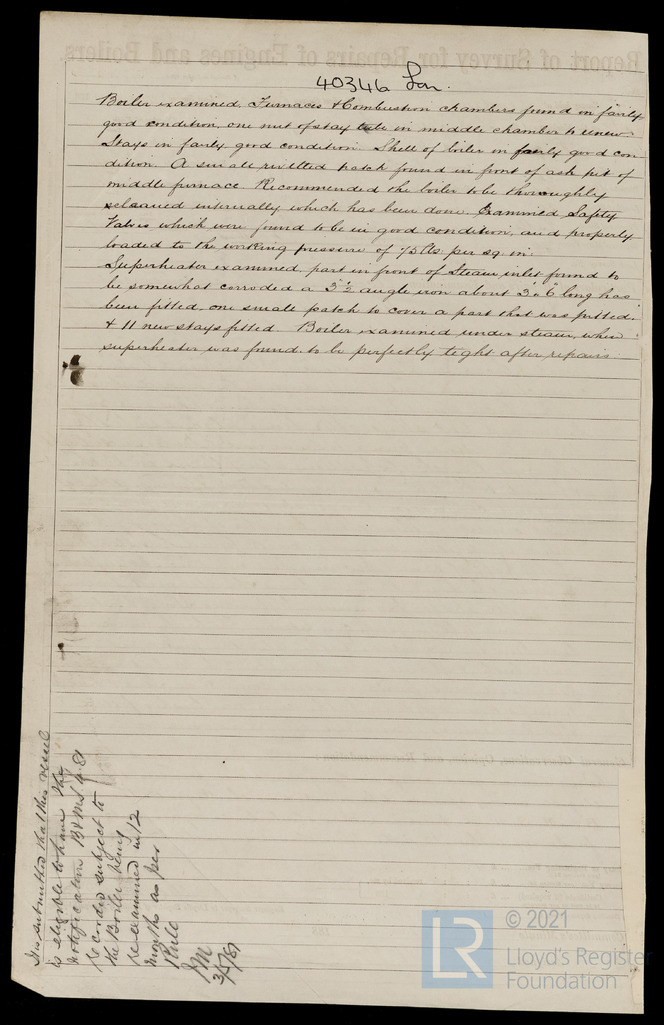 40346 Lon.
Boiler examined. Furnaces & Combustion chambers found in fairly
good condition, one nut of stay tube in middle chamber to renew
Stays in fairly good condition Shell of boiler in fairly good con-
dition. A small rivetted patch found in front of ash pit of
middle furnace. Recommended the boiler to be thoroughly
recleaned internally which has been done. Examined Safety
Valves which were found to be in good condition, and properly
loaded to the working pressure of 75 lbs per sq. in.
Superheater examined part in front of Steam inlet found to
be somewhat corroded a 3"½ angle iron about 3'.6" long has
been fitted, one small patch to cover a part that was pitted
& 11 new stays fitted Boiler examined under steam, when
superheater was found to be perfectly tight after repairs
It is submitted that this vessel
is eligible to have the
notification B&MS 4.81
Recorded subject to
the Boiler being
re-examined in 12
months as per
Rule
3/5/81
LR © 2021
Lloyd's Register
Foundation